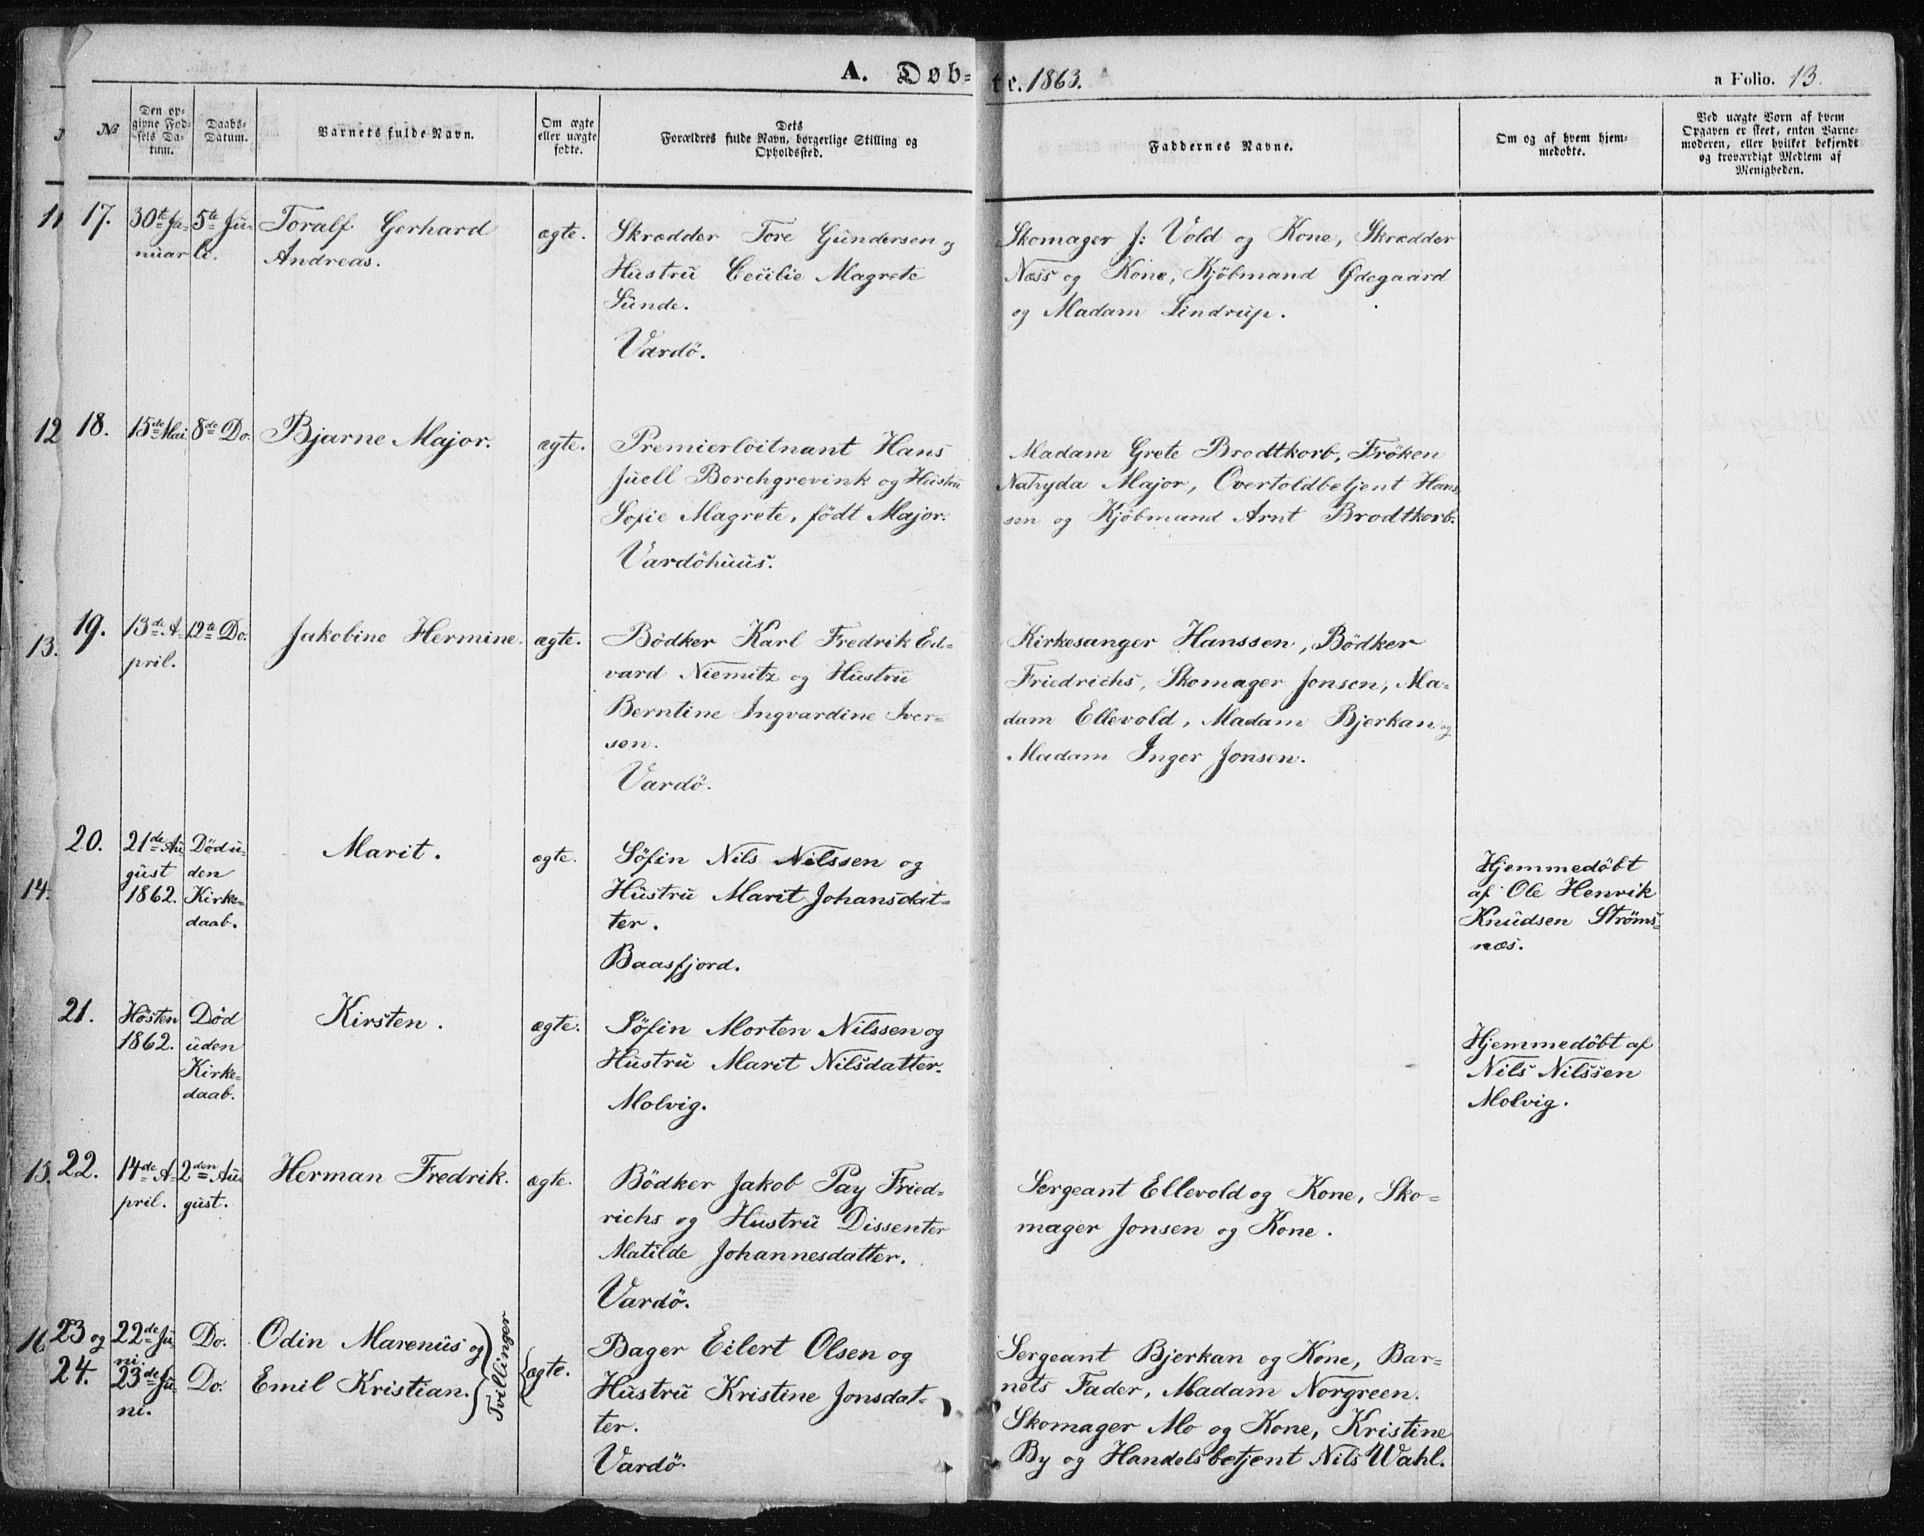 A. Døb-
te. 1863.
a Folio. 13.
№
Den op-
givne Fød-
sels Da-
tum.
Daabs-
Datum.
Barnets fulde Navn.
Om ægte
eller uægte
fødte.
Dets
Forældres fulde Navn, borgerlige Stilling og
Opholdssted.
Faddernes Navne.
Om og af hvem hjem-
medøbte.
Ved uægte Born af hvem
Opgaven er skeet, enten Barne-
moderen, eller hvilket bekjendt
og troværdigt Medlem af
Menigheden.
11
17.
30te Ja-
nuar
5te Ju-
li.
Toralf Gerhard
Andreas.
ægte.
Skrædder Tore Gundersen og
Hustru Cecilie Magrete
Sunde.
Vardö.
Skomager J: Vold og Kone, Skrædder
Næss og Kone, Kjöbmand Ødegaard
og Madam Lindrup.
12
18.
15de Mai
8de Do.
Bjarne Major.
ægte.
Premierlöitnant Hans
Juell Borchgrevink og Hustru
Sofie Magrete, födt Major.
Vardöhuus.
Madam Grete Brodtkorb, Fröken
Major, Overtoldbetjent Hans-
sen og Kjöbmand Arnt Brodtkorb.
13.
19.
13de A-
pril.
12te Do.
Jakobine Hermine.
ægte.
Bödker Karl Fredrik Ed-
vard Niemitz og Hustru
Berntine Ingvardine Iver-
sen.
Vardö.
Kirkesanger Hanssen, Bödker
Friedrichs, Skomager Jonsen, Ma-
dam Ellevold, Madam Bjerkan og
Madam Inger Jonsen.
14.
20.
21de Au-
gust
1862.
Död u-
den
Kirke-
daab.
Marit.
ægte.
Söfin Nils Nilssen og
Hustru Marit Johansdat-
ter.
Baasfjord.
Hjemmedöbt
af Ole Henrik
Knudsen Ströms-
næs.
21.
Hösten
1862.
Död
uden
Kirke-
daab.
Kirsten.
ægte.
Söfin Morten Nilssen og
Hustru Marit Nilsdatter.
Molvig.
Hjemmedöbt af
Nils Nilssen
Molvig.
15.
22.
14de A-
pril.
2den Au-
gust.
Herman Fredrik.
ægte.
Bödker Jakob Pay Fried-
richs og Hustru Dissenter
Matilde Johannesdatter.
Vardö.
Sergeant Ellevold og Kone, Sko-
mager Jonsen og Kone.
16
23 og
24.
22de Ju-
ni.
23de Ju-
ni.
Do.
Do.
Odin Marenius og
Emil Kristian.
Tvillinger
ægte.
Bager Eilert Olsen og
Hustru Kristine Jonsdat-
ter.
Vardö.
Sergeant Bjerkan og Kone, Bar-
nets Fader, Madam Norgreen.
Skomager Mo og Kone, Kristine
By og Handelsbetjent Nils Wahl.